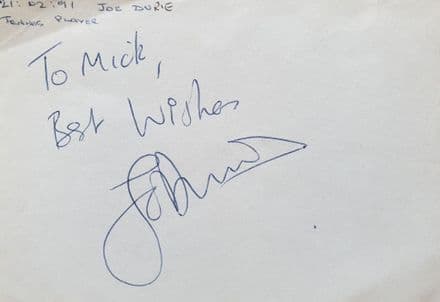 21:02:91 JOE DURIE
TENNIS PLAYER
To Mick,
Best Wishes
Jo Durie